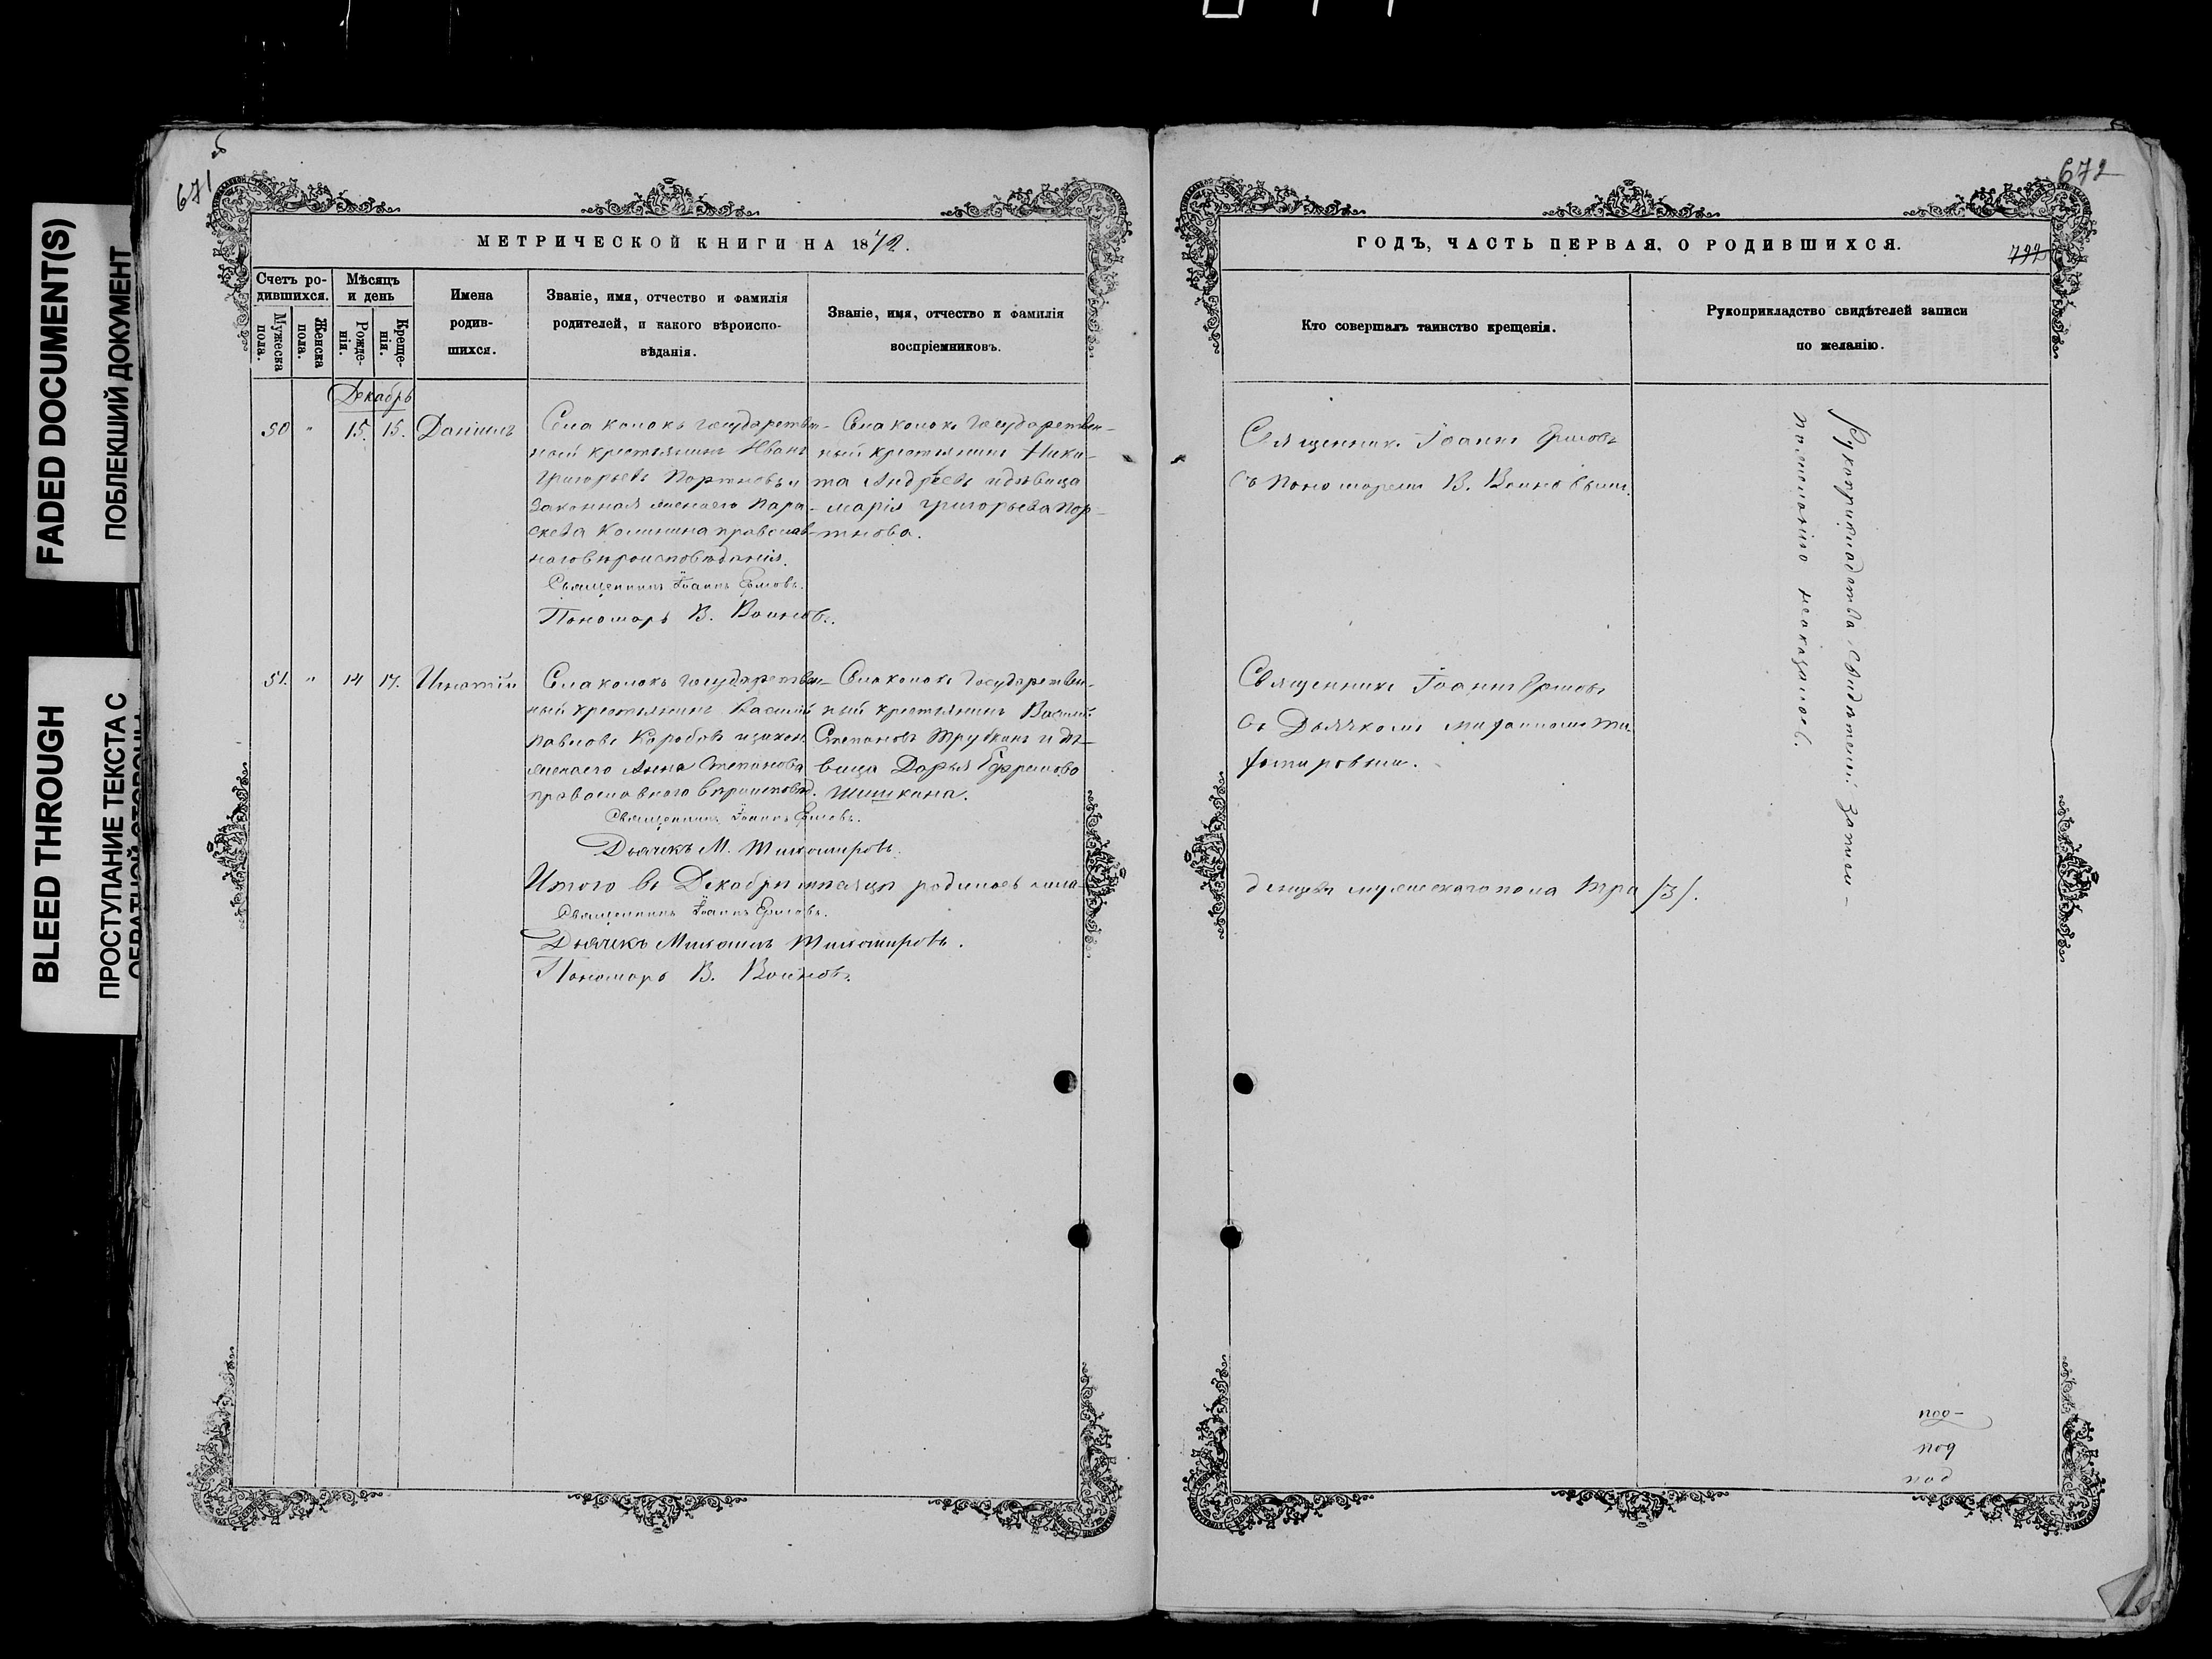 FADED DOCUMENT(S)
ПОБЛЕКШИЙ ДОКУМЕНТ
BLEED THROUGH
ПРОСТУПАНИЕ ТЕКСТА С
ОБРАТНОЙ СТОРОНЫ
671
об
МЕТРИЧЕСКОЙ КНИГИ НА 1872.
Счетъ ро-
дившихся.
Мужеска
пола.
Женска
пола.
Мѣсяцъ
и день
Рожде-
нія.
Креще-
нія.
Имена
родив-
шихся.
Званіе, имя, отчество и фамилія
родителей, и какого вѣроиспо-
вѣданія.
Званіе, имя, отчество и фамилія
воспріемниковъ.
Декабрь
50 " 15. 15. Даніилъ
Села колокъ государствен-
ной крестьянинъ Иванъ
Григорьевъ Портновъ и
законная жена его Пара-
скева Козмина православ-
наго вѣроисповѣданія.
Священникъ Іоаннъ Ершовъ.
Пономарь В. Воиновъ.
Села колокъ Государствен-
ный крестьянинъ Ники-
та Андреевъ и дѣвица
марія григорьева Пор-
тнова.
51. " 14 17. Игнатій
Села колокъ государствен-
ный крестьянинъ Василій
Павловъ Коробовъ и закон.
жена его Анна Степанова
православного вѣроисповѣд.
Священникъ Іоаннъ Ершовъ.
Дьячекъ М. Тихомировъ.
Села колокъ Государствен-
ный крестьянинъ Василій
Степановъ Трубкинъ и дѣ-
вица Дарья Ефремова
Шишкина.
Итого въ Декабрѣ мѣсяцѣ родилось мла-
Священникъ Іоаннъ Ершовъ.
Дьячекъ Михаилъ Тихомировъ.
Пономарь В. Воиновъ.
672
722
ГОДЪ, ЧАСТЬ ПЕРВАЯ, О РОДИВШИХСЯ.
Кто совершалъ таинство крещенія.
Рукоприкладство свидѣтелей записи
по желанію.
Священникъ Іоаннъ Ершовъ
съ Пономаремъ В. Воиновымъ.
Священникъ Іоаннъ Ершовъ
съ Дьячкомъ Михаиломъ Ти-
хомировым.
денцевъ мужескаго пола три /3/.
Рукоприкладства свидѣтелей записи-
по желанію неоказалось.
под-
под
под